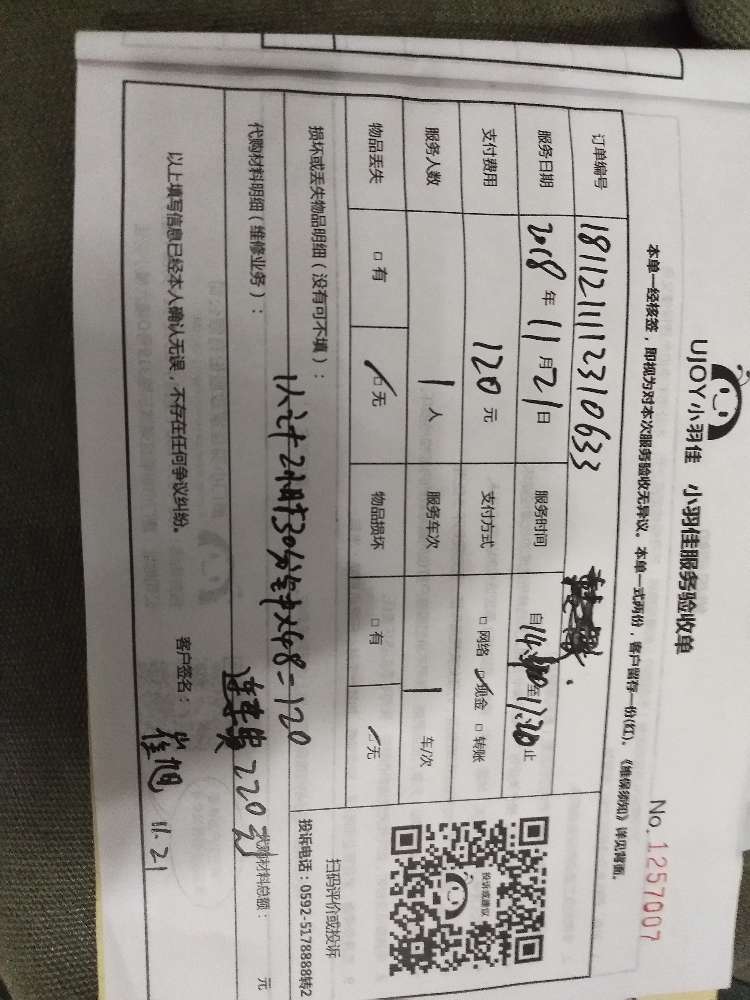 UJOY小羽佳 小羽佳服务验收单
No. 1257007
本单一经核签，即视为对本次服务验收无异议。本单一式两份，客户留存一份(红)。《维保须知》详见背面。
订单编号 1811211112310633
服务日期 2018 年 11 月 21 日 服务时间 自 至 17:20 止
支付费用 120 元 支付方式 □ 网络 ☑ 现金 □ 转账
服务人数 1 人 服务车次 1 车/次
物品丢失 □ 有 ☑ 无 物品损坏 □ 有 ☑ 无
投诉或建议
扫码评价或投诉
投诉电话：0592-5178888转2
损坏或丢失物品明细（没有可不填）：
共计2小时30分钟×48=120
代购材料明细（维修业务）：
220元
代购材料总额： 元
以上填写信息已经本人确认无误，不存在任何争议纠纷。
客户签名： 11.21